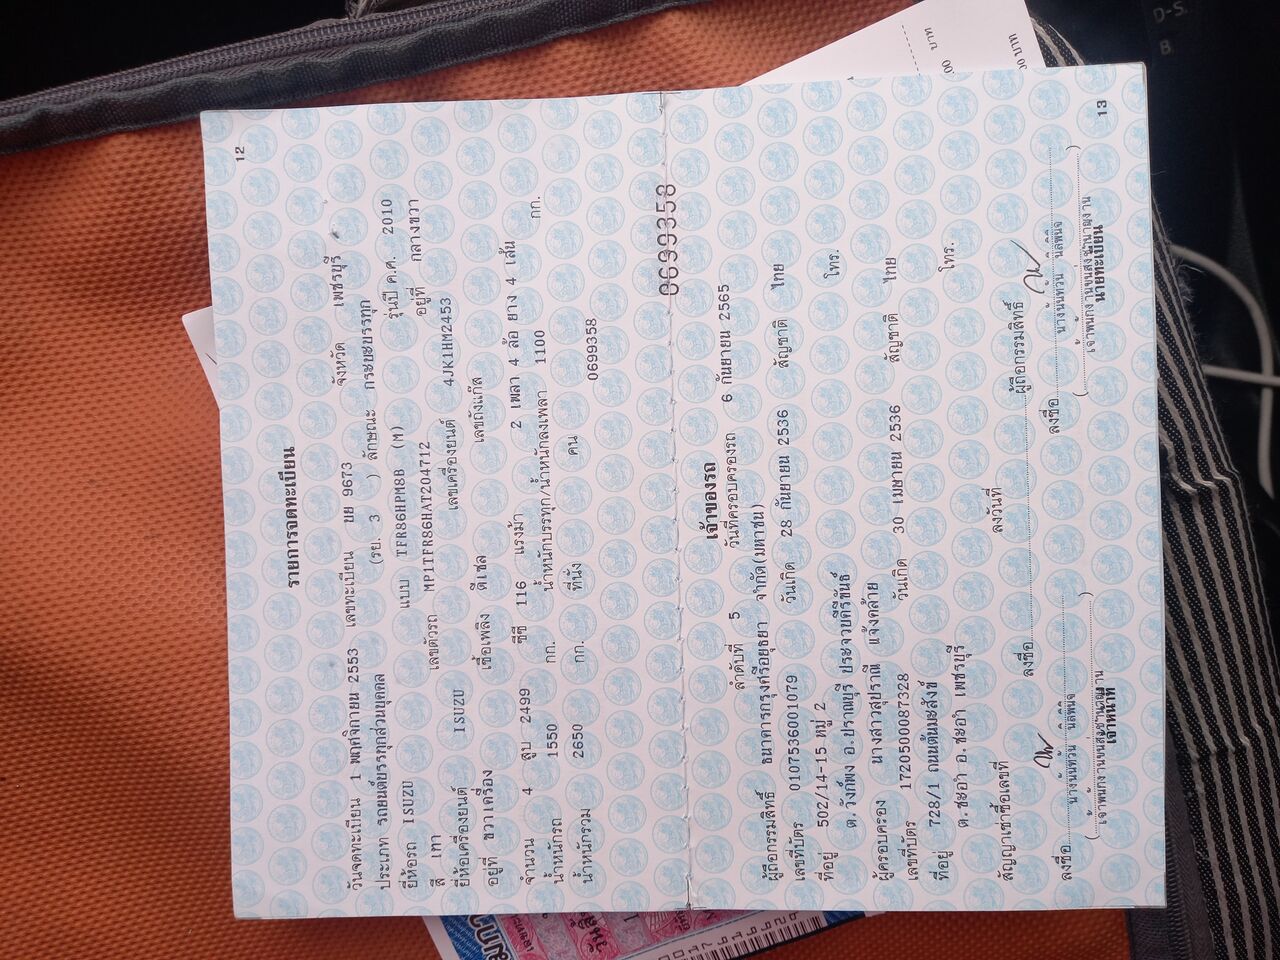 12
รายการจดทะเบียน
วันจดทะเบียน 1 พฤศจิกายน 2553 เลขทะเบียน บย 9673 จังหวัด เพชรบุรี
ประเภท รถยนต์บรรทุกส่วนบุคคล (รย. 3 ) ลักษณะ กระบะบรรทุก
ยี่ห้อรถ ISUZU แบบ TFR86HPM8B (M) รุ่นปี ค.ศ. 2010
สี เทา เลขตัวรถ MP1TFR86HAT204712 อยู่ที่ กลางขวา
ยี่ห้อเครื่องยนต์ ISUZU เลขเครื่องยนต์ 4JK1HM2453
อยู่ที่ ขวาเครื่อง เชื้อเพลิง ดีเซล เลขถังแก๊ส
จำนวน 4 สูบ 2499 ซีซี 116 แรงม้า 2 เพลา 4 ล้อ ยาง 4 เส้น
น้ำหนักรถ 1550 กก. น้ำหนักบรรทุก/น้ำหนักลงเพลา 1100 กก.
น้ำหนักรวม 2650 กก. ที่นั่ง คน
0699358
0699358
เจ้าของรถ
ลำดับที่ 5 วันที่ครอบครองรถ 6 กันยายน 2565
ผู้ถือกรรมสิทธิ์ ธนาคารกรุงศรีอยุธยา จำกัด(มหาชน)
เลขที่บัตร 0107536001079 วันเกิด 28 กันยายน 2536 สัญชาติ ไทย
ที่อยู่ 502/14-15 หมู่ 2
ต.วังก์พง อ.ปราณบุรี ประจวบคีรีขันธ์ โทร.
ผู้ครอบครอง นางสาวสุปราณี แจ้งคล้าย
เลขที่บัตร 1720500087328 วันเกิด 30 เมษายน 2536 สัญชาติ ไทย
ที่อยู่ 728/1 ถนนต้นมะสังข์
ต.ชะอำ อ.ชะอำ เพชรบุรี โทร.
สัญญาเช่าซื้อเลขที่ ลงวันที่
ลงชื่อ ผู้ถือกรรมสิทธิ์
ลงชื่อ ลงชื่อ
เจ้าหน้าที่ นายทะเบียน
13
.00 บาท
บาท
D-S
B